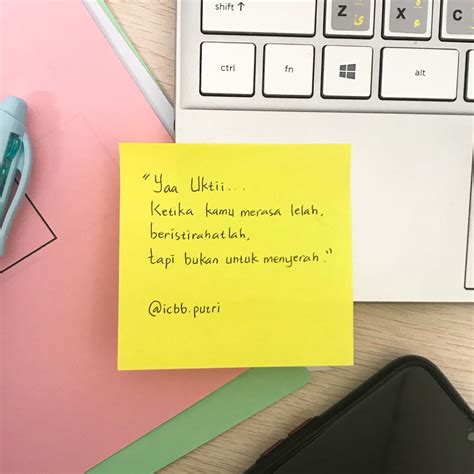 shift ↑
Z ئ
X ء
C
ctrl
fn
alt
"Yaa Uktii...
Ketika kamu merasa lelah,
beristirahatlah,
tapi bukan untuk menyerah."
@icbb.putri